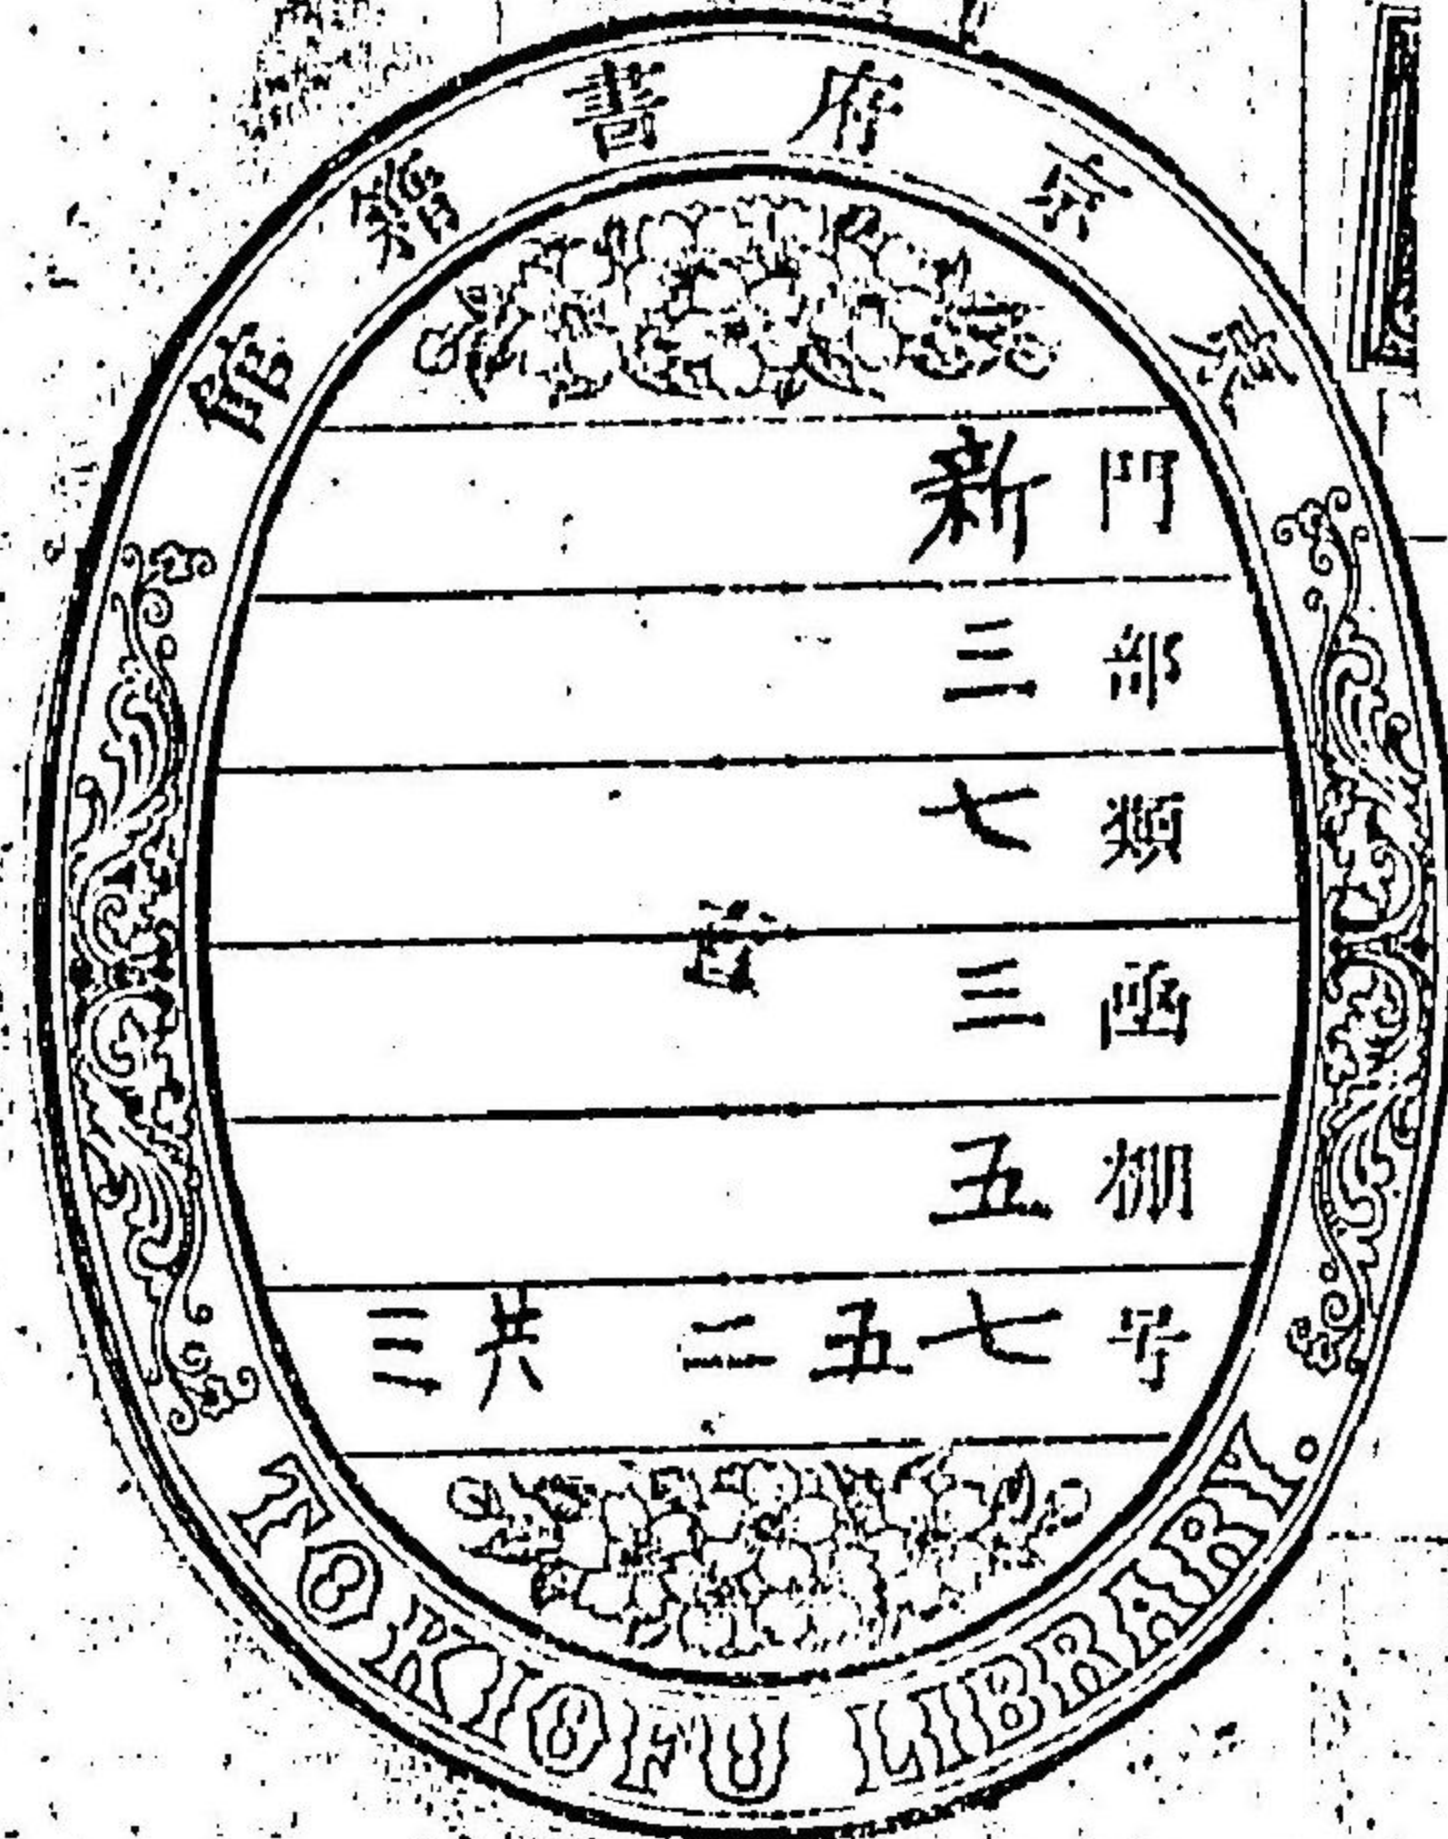 東京府書籍館
門 新
部 三
類 七
函 三
棚 五
号 七五二 共三
TOKIOFU LIBRARY.